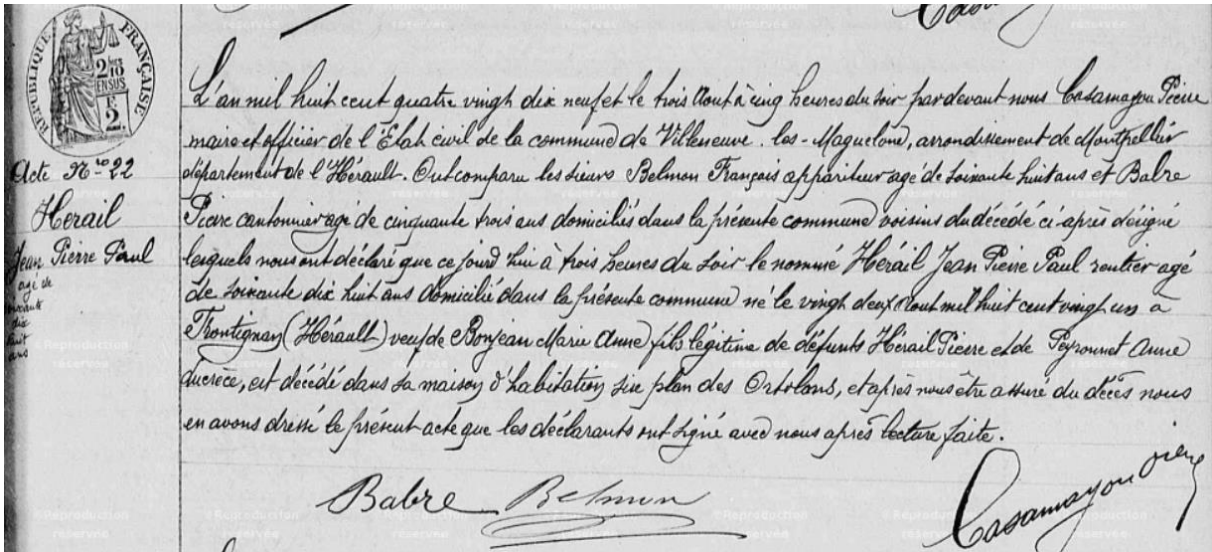 RÉPUBLIQUE FRANÇAISE
2/10 EN SUS
F
2.
Acte No 22
Herail
Jean Pierre Paul
agé de
soixante
dix
huit
ans
L'an mil huit cent quatre vingt dix neuf et le trois Aout à cinq heures du soir par devant nous Casamayou Pierre
maire et officier de l'Etat civil de la commune de Villeneuve-les-Maguelone, arrondissement de Montpellier
département de l'Hérault. Ont comparu les sieurs Belmon Français appariteur agé de soixante huit ans et Babre
Pierre cantonnier agé de cinquante trois ans domiciliés dans la présente commune voisins du décédé ci-après désigné
lesquels nous ont déclaré que ce jourd'hui à trois heures du soir le nommé Hérail Jean Pierre Paul rentier agé
de soixante dix huit ans domicilié dans la présente commune né le vingt deux Aout mil huit cent vingt un à
Frontignan (Hérault) veuf de Bonjean Marie Anne fils légitime de défunts Hérail Pierre et de Peyronnet Anne
Lucrèce, est décédé dans sa maison d'habitation sise plan des Ortolans, et après nous être assuré du décès nous
en avons dressé le présent acte que les déclarants ont signé avec nous après lecture faite.
Babre Belmon Casamayou Pierre
©Reproduction réservée